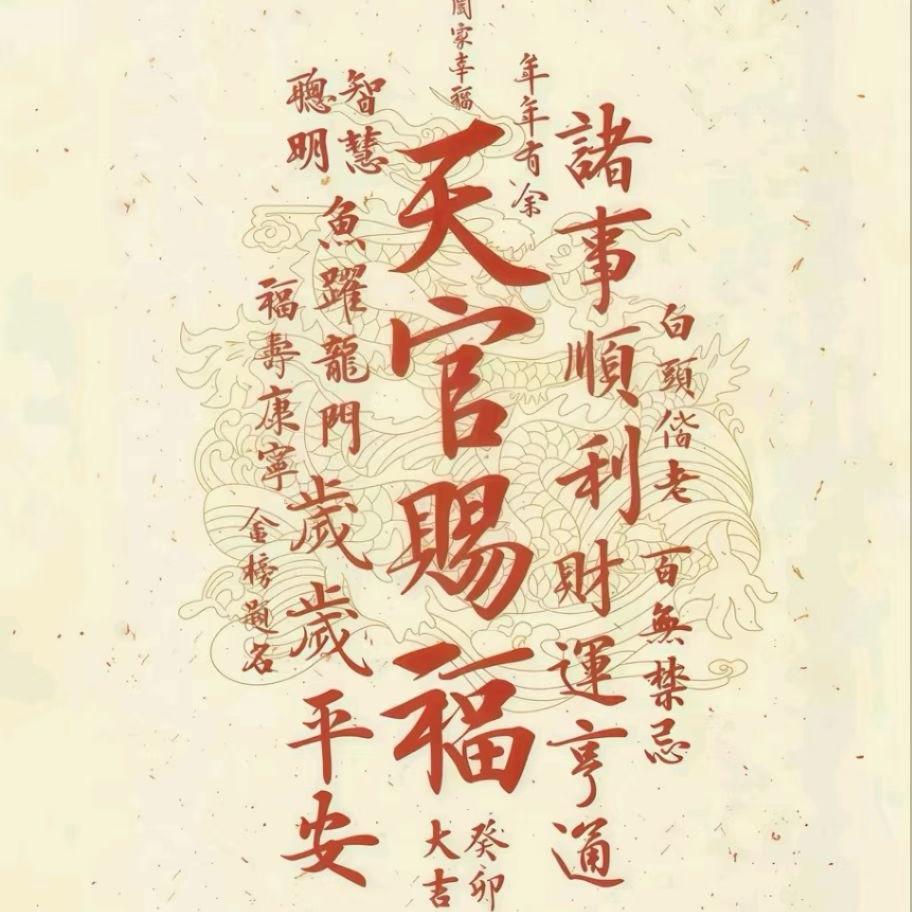 闔家幸福
天官賜福
癸卯
大吉
年年有余
諸事順利
財運亨通
白頭偕老
百無禁忌
智慧
聰明
魚躍龍門
歲歲平安
福壽康寧
金榜題名